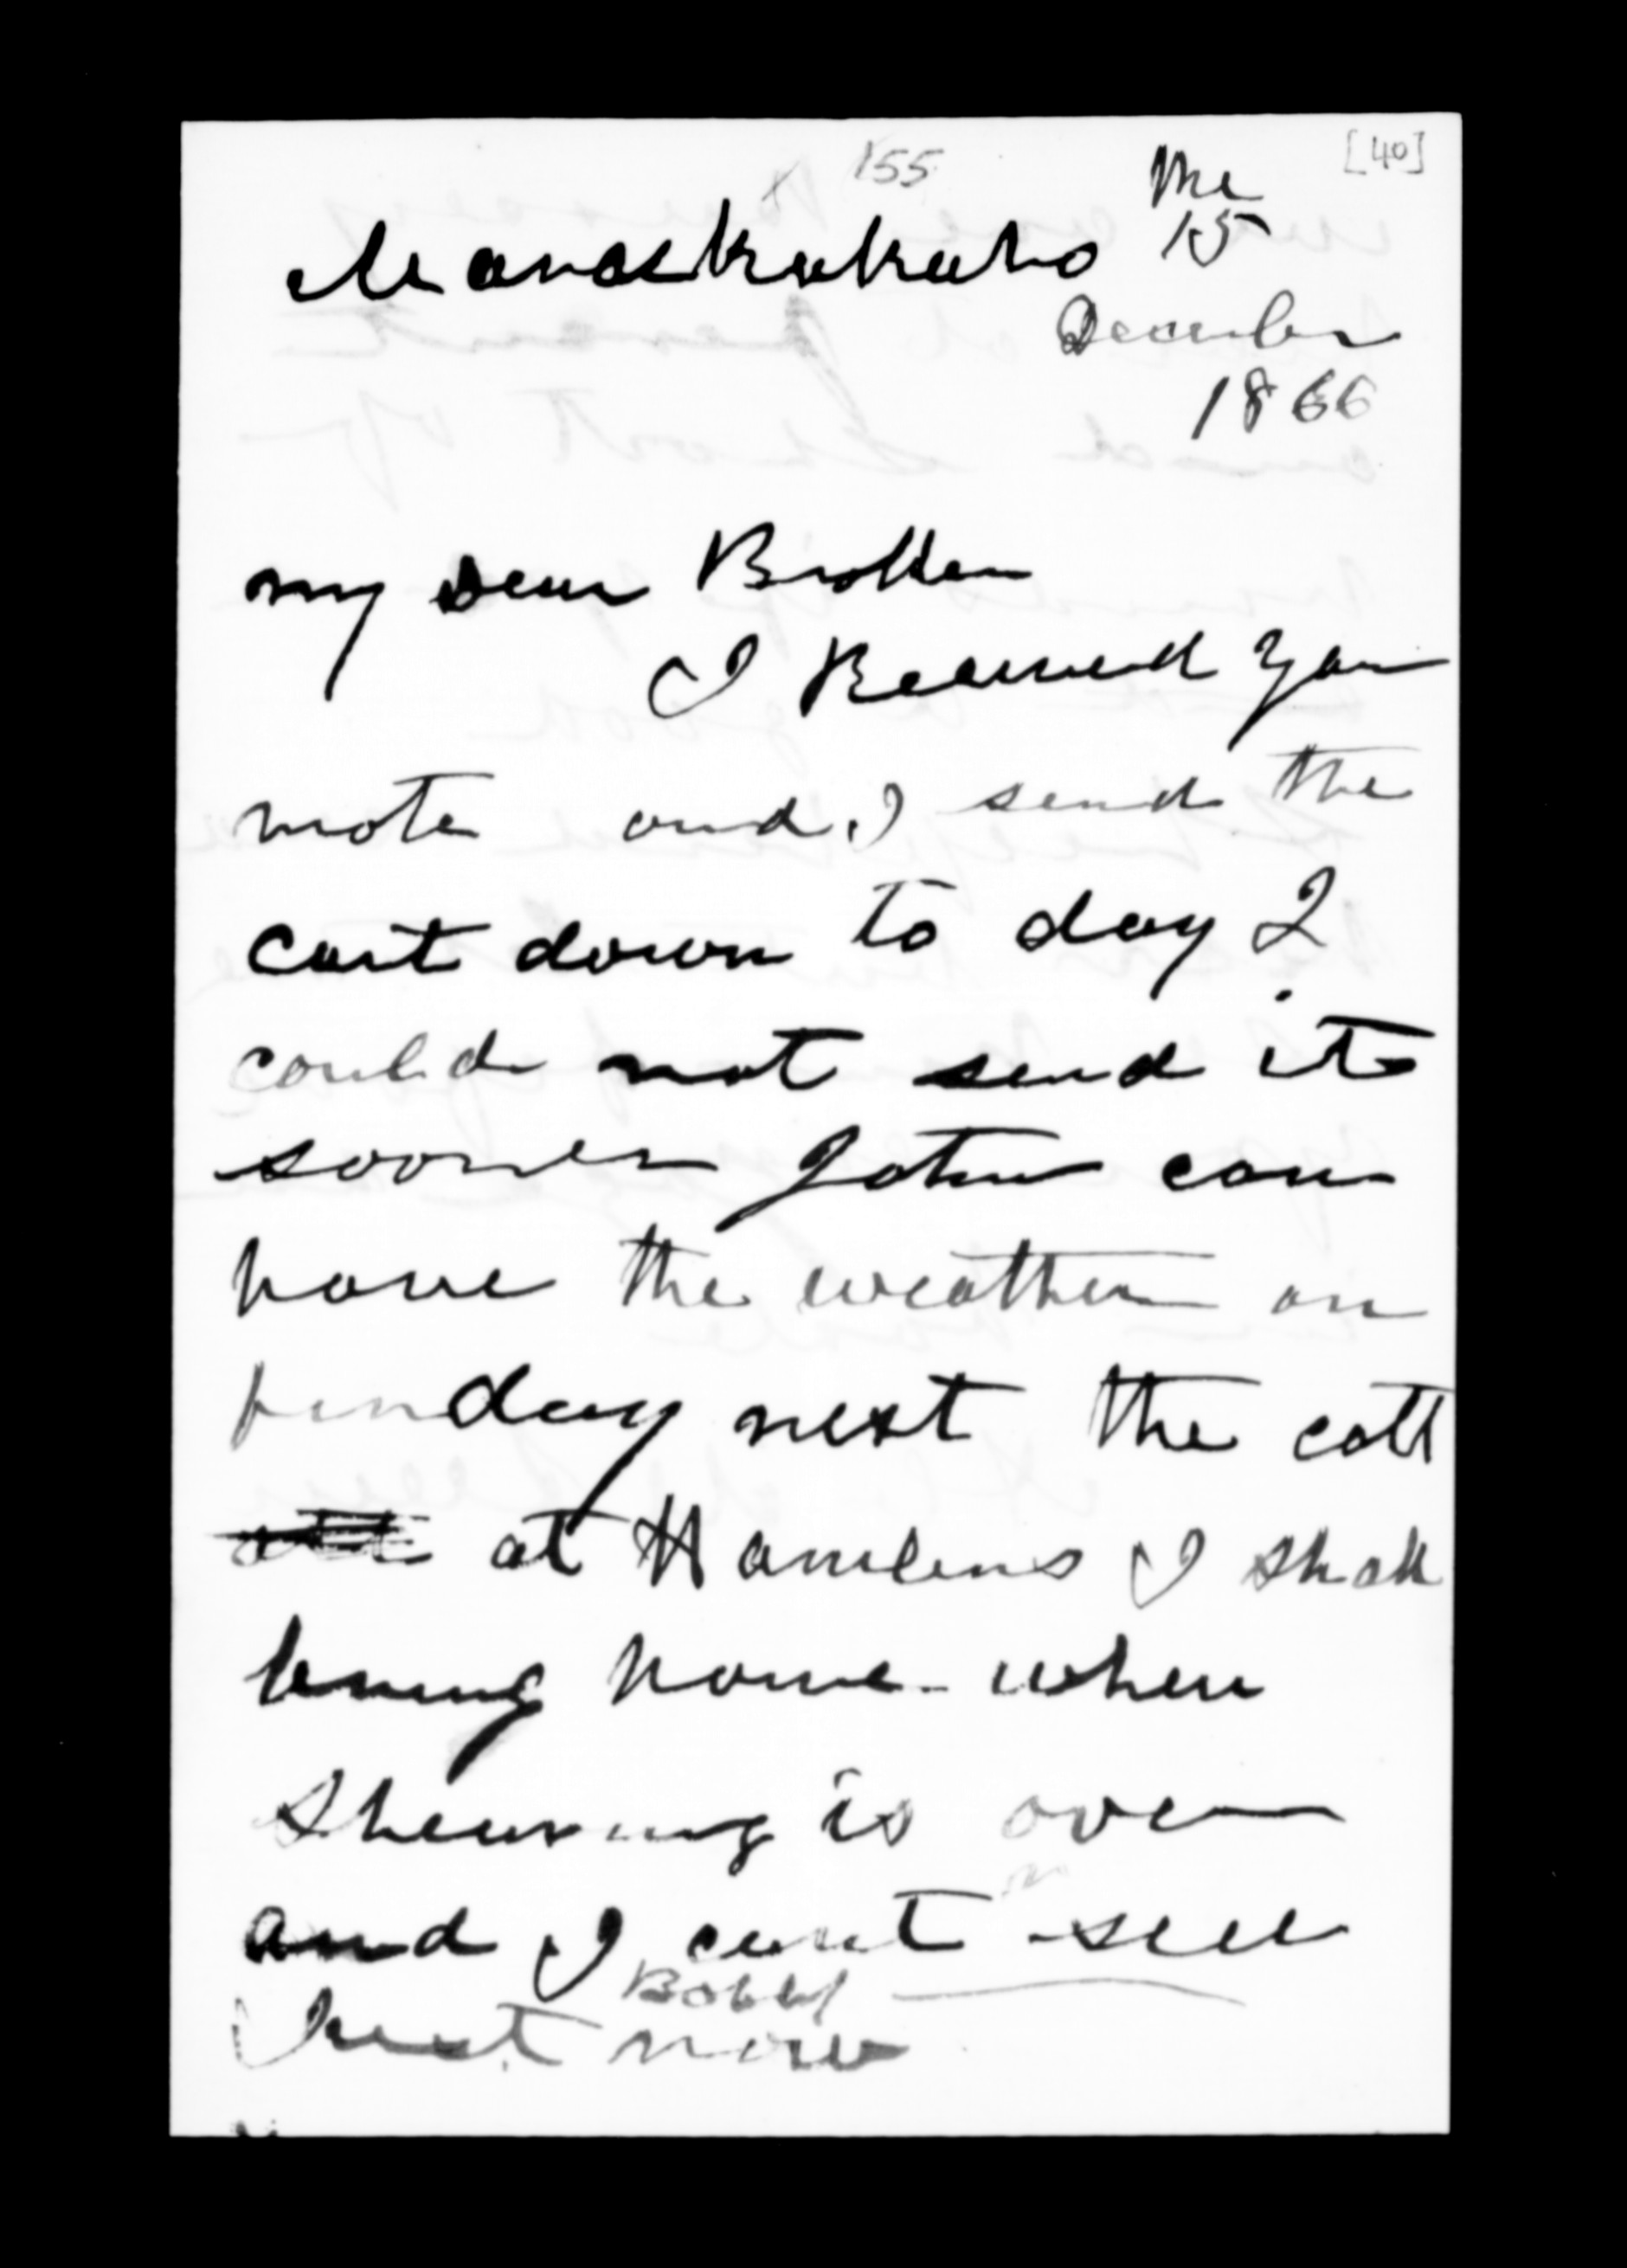 155 [40]
Maraekakaho The
15
December
1866
my Dear Brother
I Received your
note and I send the
cart down to day I
could not send it
sooner John can
have the weather on
day next the catt
at Hamlins I shall
bring home when
Shearing is over
and I cant sell
Bobby
Just now